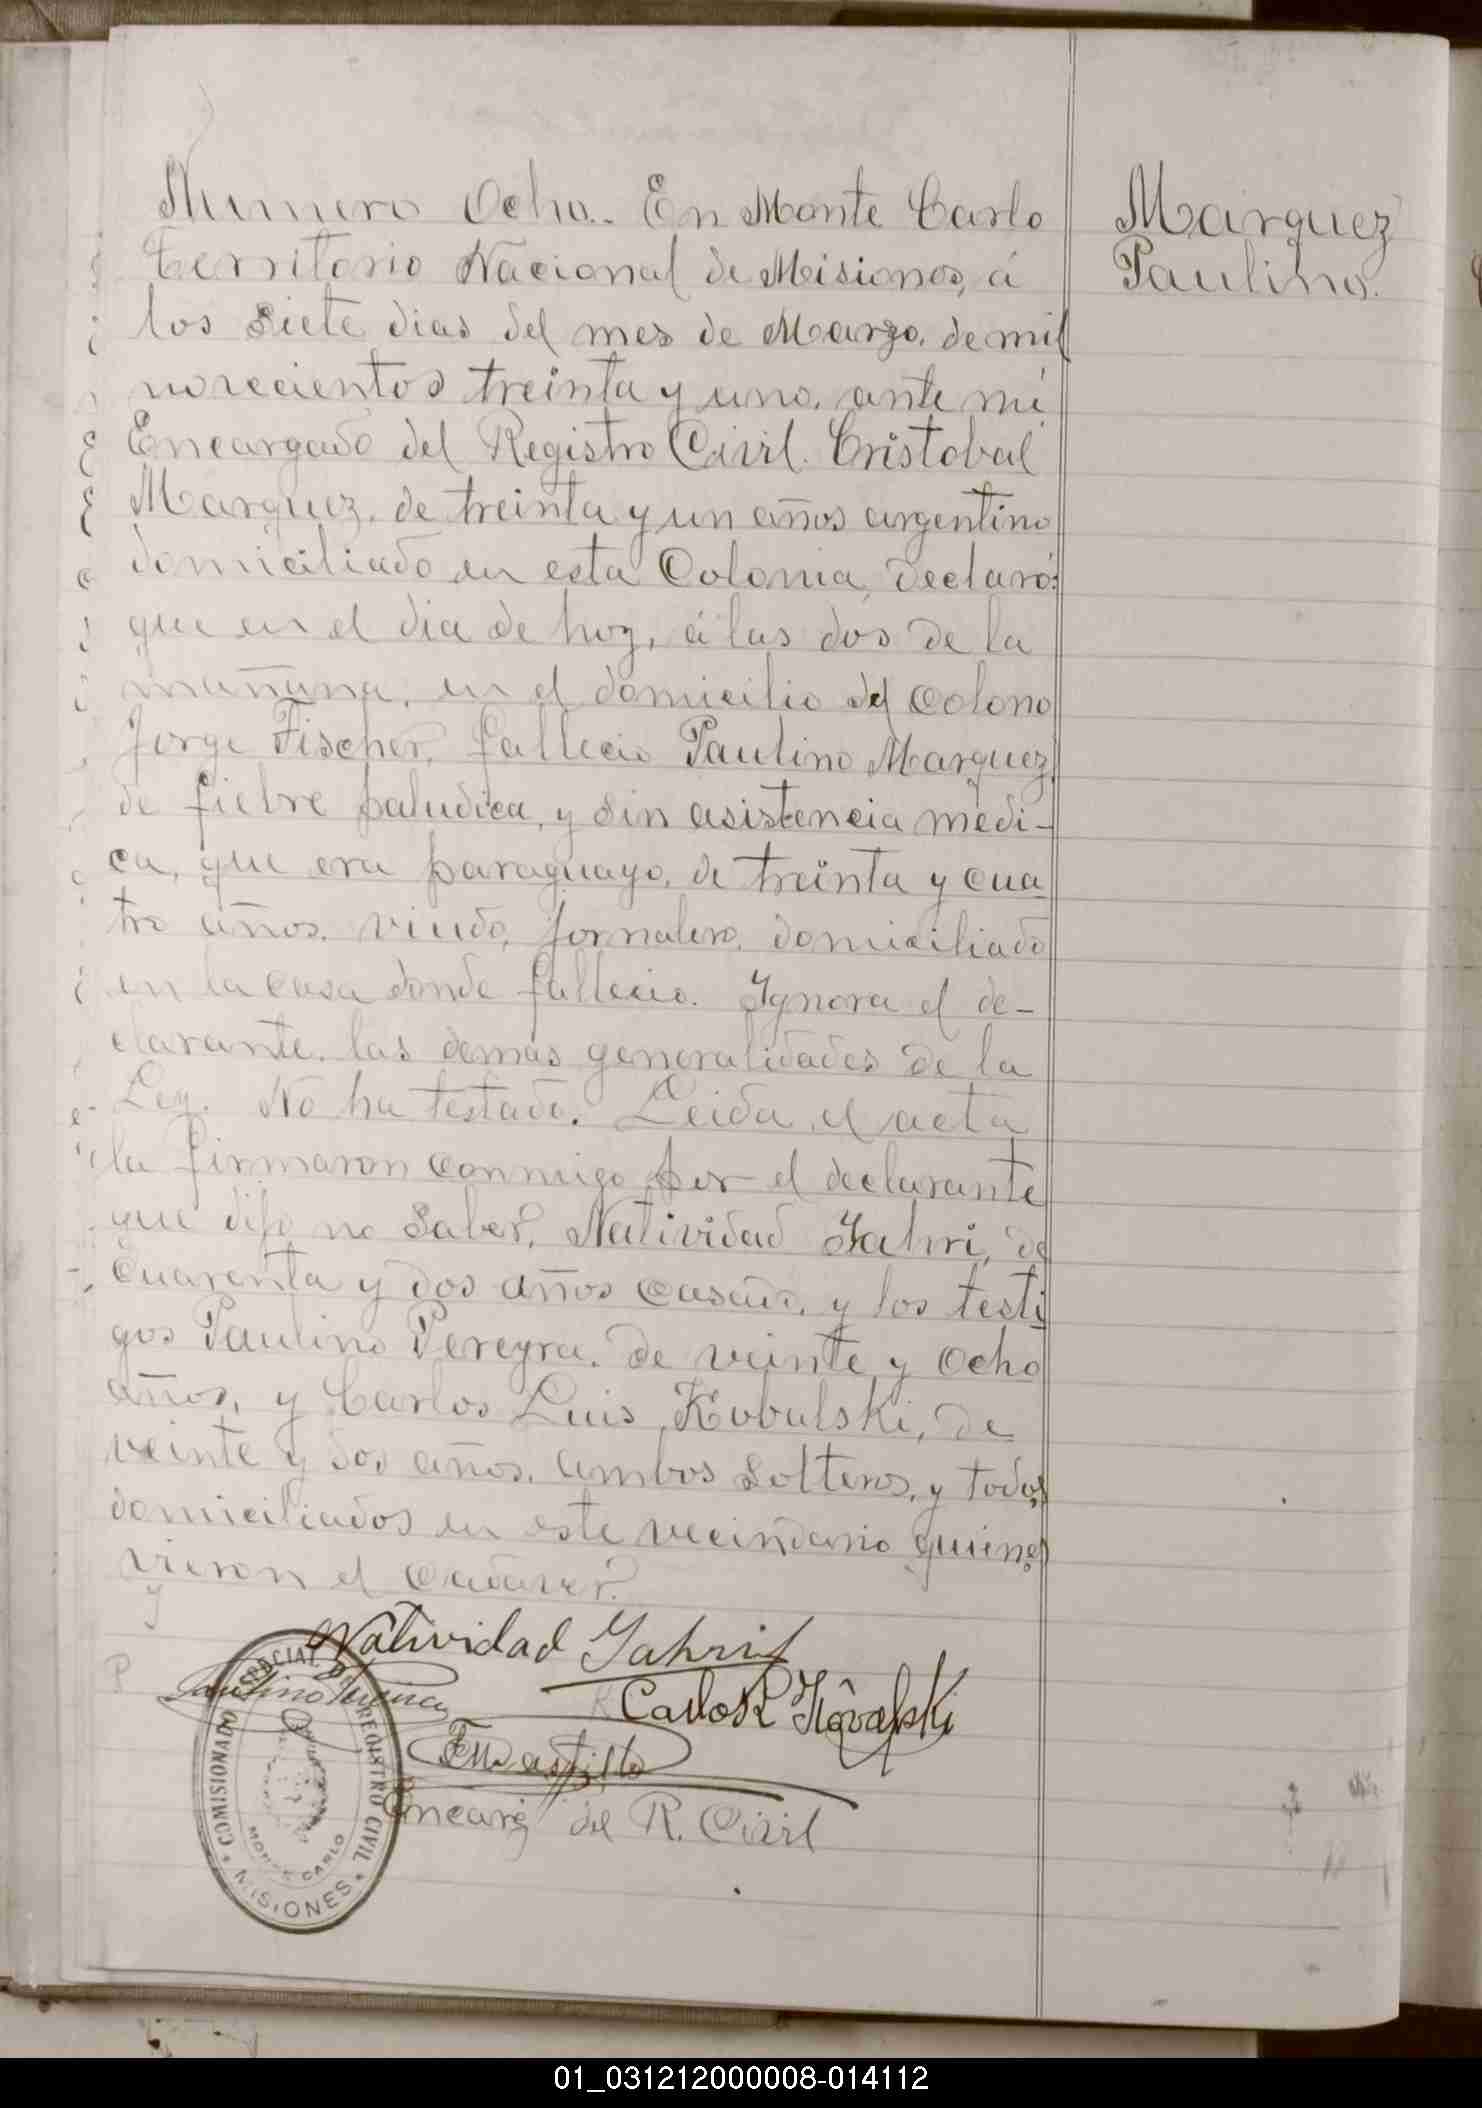 Numero Ocho.- En Monte Carlo
Territorio Nacional de Misiones, á
los siete dias del mes de Marzo. de mil
novecientos treinta y uno. ante mi
Encargado del Registro Civil. Cristobal
Marquez, de treinta y un años argentino
domiciliado en esta Colonia, declaró:
que en el dia de hoy, á las dos de la
mañana, en el domicilio del colono
Jorge Fischer, fallecio Paulino Marquez
de fiebre paludica, y sin asistencia medi-
ca, que era paraguayo, de treinta y cua
tro años. viudo, jornalero, domiciliado
en la casa donde fallecio. Ygnora el de-
clarante. las demas generalidades de la
Ley. No ha testado. Leida el acta
la firmaron conmigo por el declarante
que dijo no saber, Natividad Yahri, de
cuarenta y dos años casado, y los testi
gos Paulino Pereyra. de veinte y ocho
años, y Carlos Luis Kobulski, de
veinte y dos años. ambos solteros, y todos
domiciliados en este vecindario quienes
vieron el cadaver.
Marquez
Paulino.
Natividad Yahri
Paulino
Carlos Kovalski
Castillo
Encarg del R. Civil
COMISIONADO ESPECIAL DEL REGISTRO CIVIL
MONTE CARLO
MISIONES
01_031212000008-014112